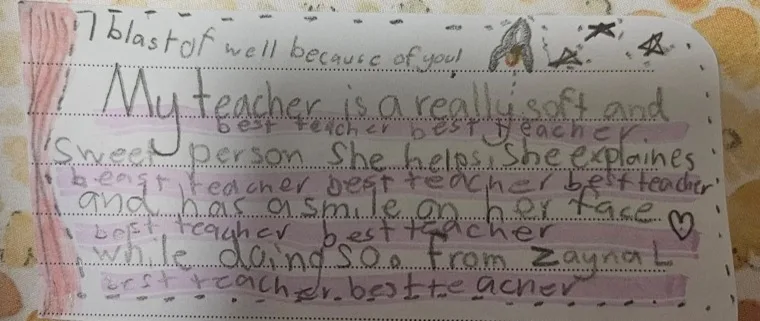 I blast of well because of you!
My teacher is a really soft and
best teacher best teacher
Sweet person She helps, She explaines
beast teacher best teacher best teacher
and has a smile on her face
best teacher best teacher
while doing so. from Zaynal
best teacher. best teacher